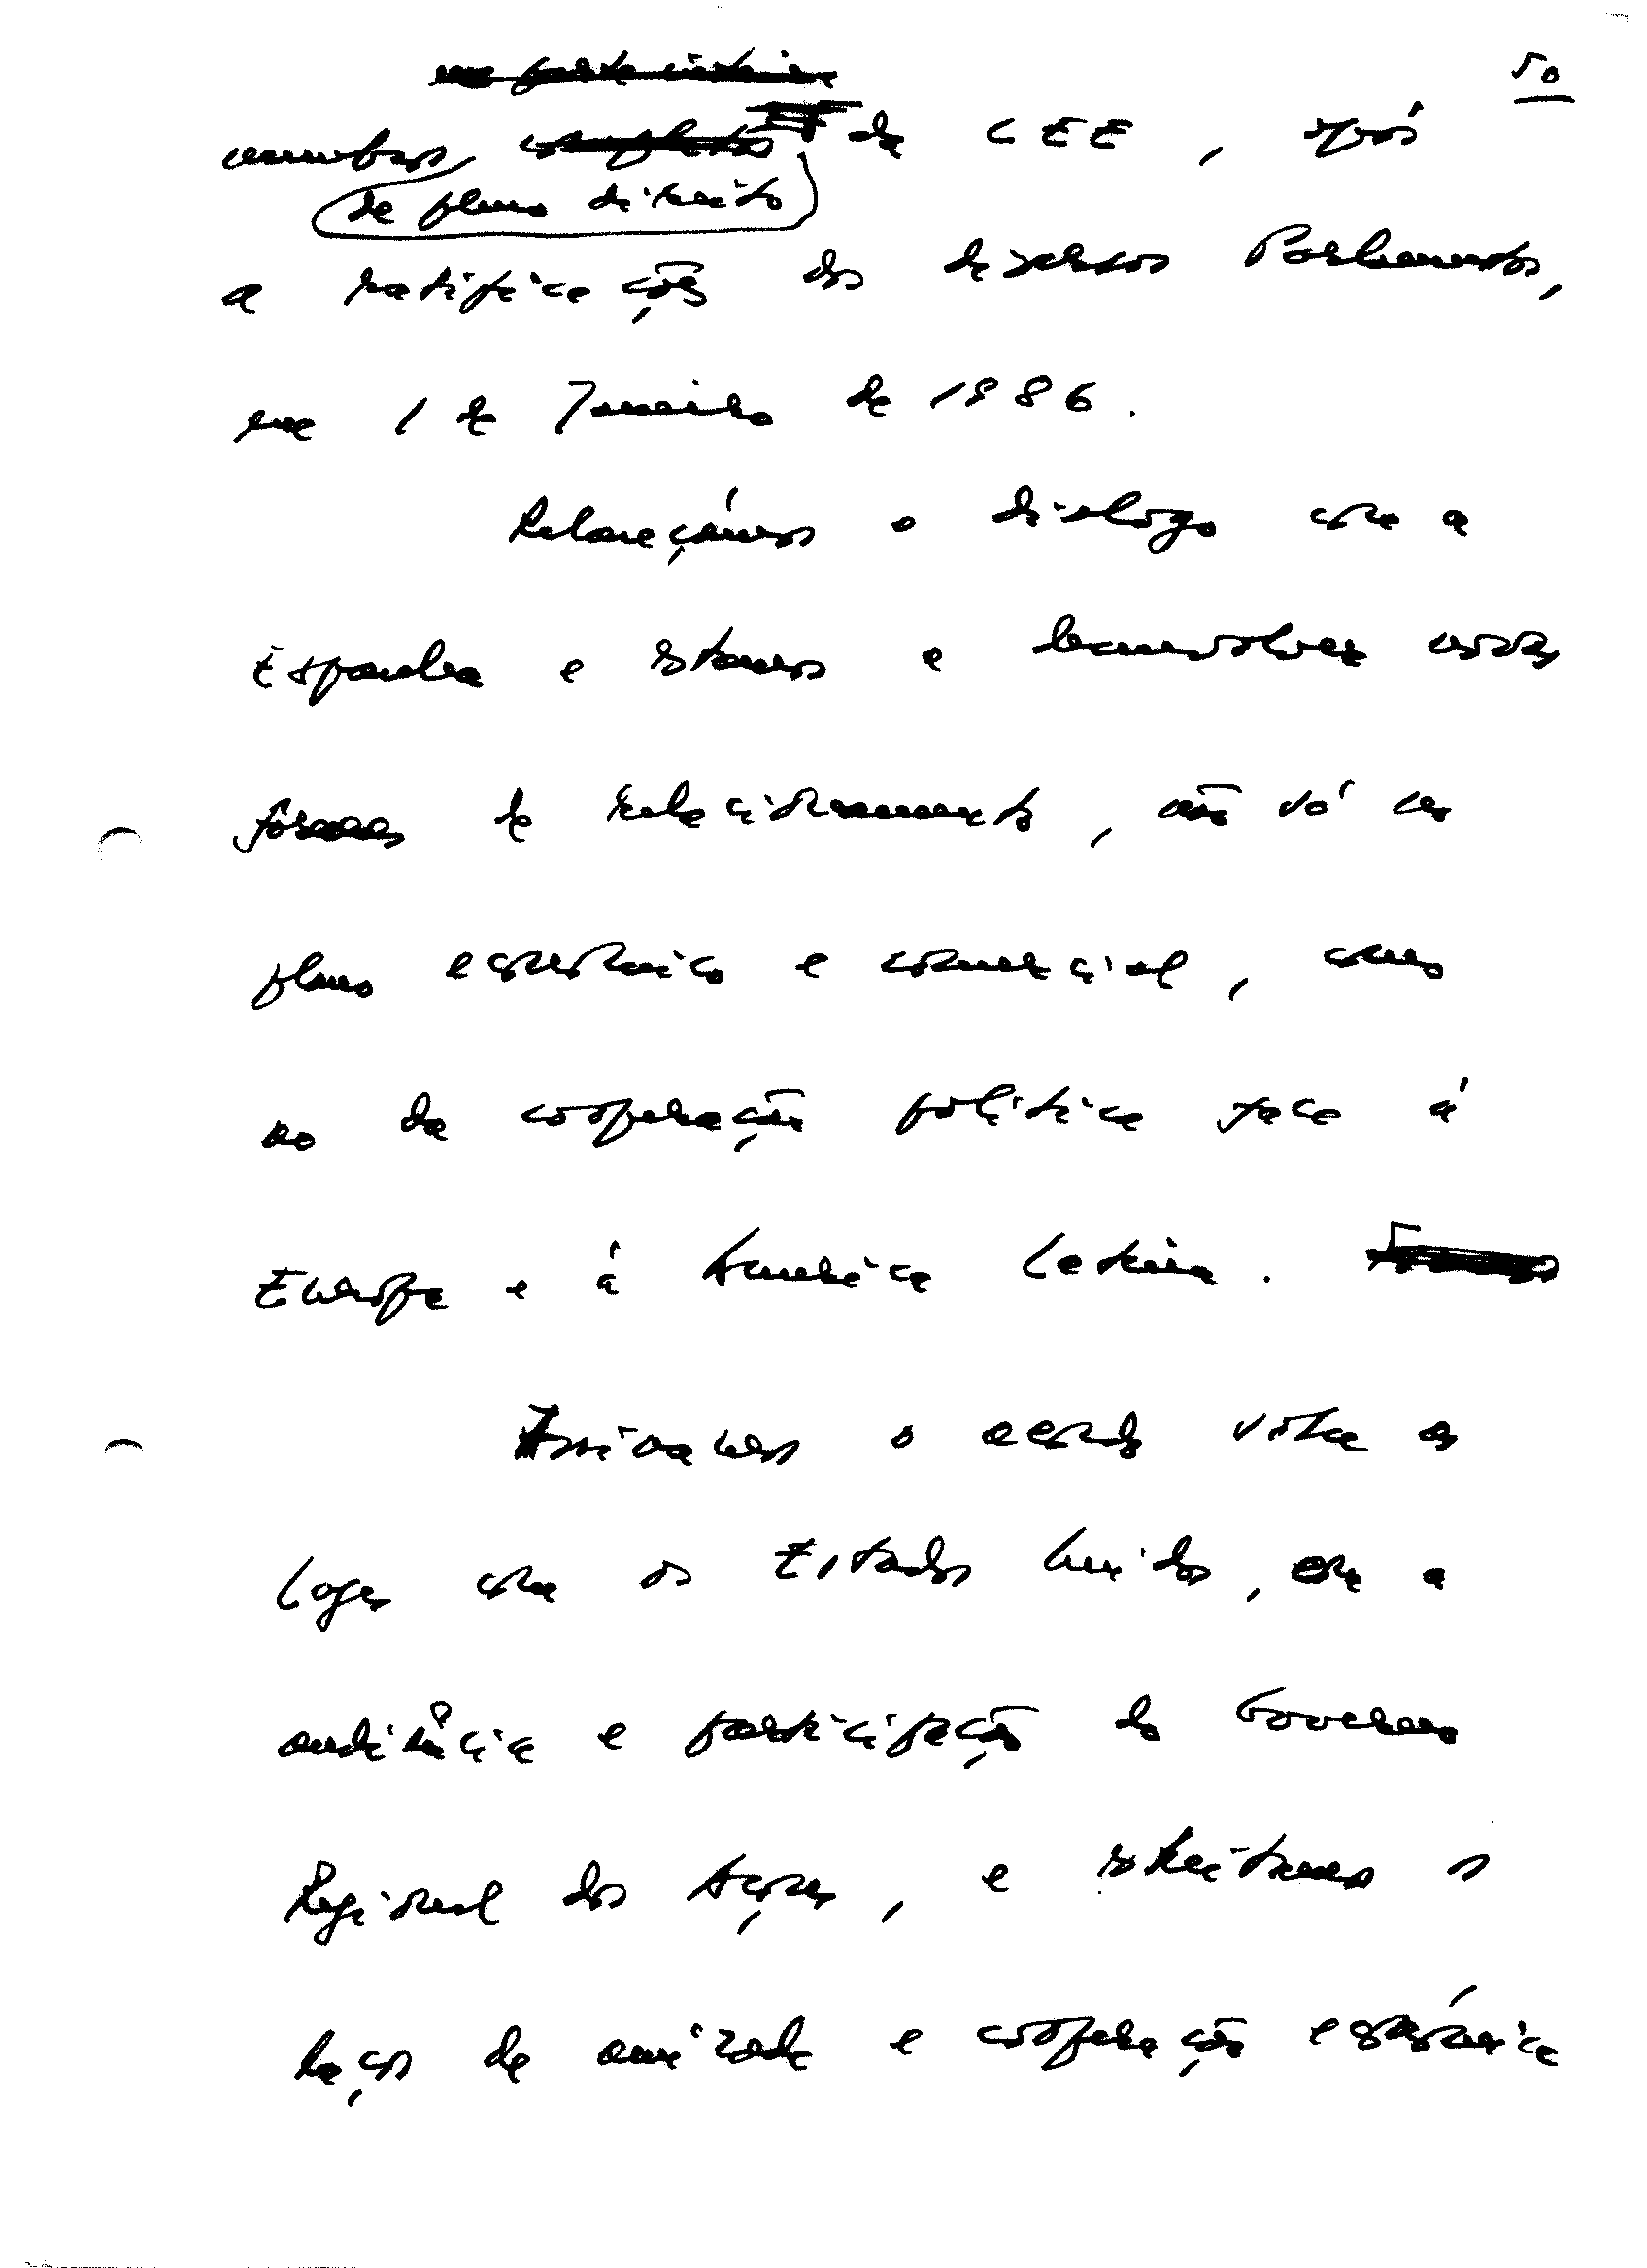 50
membros de pleno direito da CEE, após
a ratificação dos diversos Parlamentos,
em 1 de Janeiro de 1986.
Relançámos o diálogo com a
Espanha e estamos a desenvolver novas
formas de relacionamento, não só no
plano económico e comercial, como
no da cooperação política face à
Europa e à América Latina.
Assinámos o acordo sobre as
Lages com os Estados Unidos, com a
audiência e participação do Governo
Regional dos Açores, e estreitámos os
laços de amizade e cooperação económica